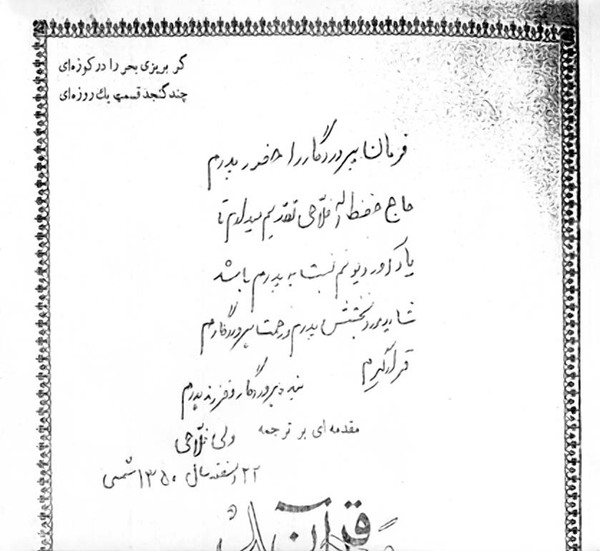 گر بریزی بحر را در کوزه‌ای
چند گنجد قسمت یك روزه‌ای
فرمان پروردگار را حضور پدرم
حاج حفظ اله فلاحی تقدیم میدارم تا
یادآور دیونم نسبت به پدرم باشد
شاید مورد بخشش پدرم و رحمت پروردگارم
قرار گیرم
بنده پروردگار و فرزند پدرم
مقدمه ای بر ترجمه
ولی فلاحی
۲۲ اسفند سال ۱۳۵۰ شمسی
قرآن